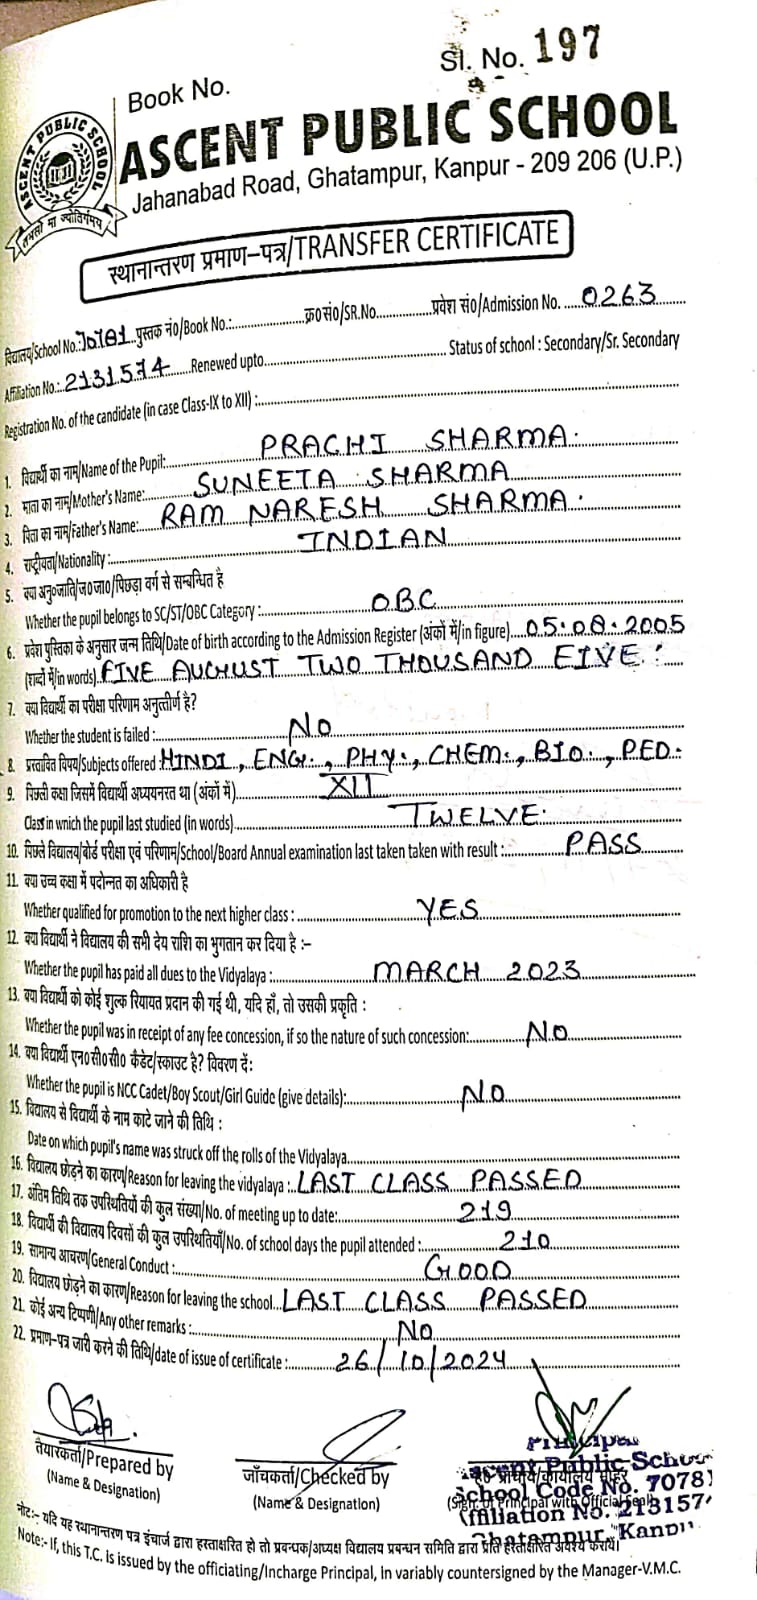 Sl. No. 197
Book No.
ASCENT PUBLIC SCHOOL
ASCENT PUBLIC SCHOOL
तमसो मा ज्योतिर्गमय
Jahanabad Road, Ghatampur, Kanpur - 209 206 (U.P.)
स्थानान्तरण प्रमाण-पत्र/TRANSFER CERTIFICATE
विद्यालय/School No.: 70781 पुस्तक नं0/Book No.:..........क्र0सं0/SR.No..........प्रवेश सं0/Admission No. ....0263
Affiliation No.: 2131574 ....Renewed upto..........Status of school : Secondary/Sr. Secondary
Registration No. of the candidate (in case Class-IX to XII) :..........
1. विद्यार्थी का नाम/Name of the Pupil:..........PRACHI SHARMA.
2. माता का नाम/Mother's Name:..........SUNEETA SHARMA
3. पिता का नाम/Father's Name:....RAM NARESH SHARMA.
4. राष्ट्रीयता/Nationality :..........INDIAN
5. क्या अनु0जाति/ज0जा0/पिछड़ा वर्ग से सम्बन्धित है
Whether the pupil belongs to SC/ST/OBC Category :..........OBC
6. प्रवेश पुस्तिका के अनुसार जन्म तिथि/Date of birth according to the Admission Register (अंकों में/in figure)....05.08.2005
(शब्दों में/in words). FIVE AUGHUST TWO THOUSAND EIVE.
7. क्या विद्यार्थी का परीक्षा परिणाम अनुत्तीर्ण है?
Whether the student is failed :..........No
8. प्रस्तावित विषय/Subjects offered HINDI, ENG., PHY., CHEM., BIO., PED.
9. पिछली कक्षा जिसमें विद्यार्थी अध्ययनरत था (अंकों में)..........XII
Class in wnich the pupil last studied (in words)..........TWELVE.
10. पिछले विद्यालय/बोर्ड परीक्षा एवं परिणाम/School/Board Annual examination last taken taken with result :..........PASS
11. क्या उच्च कक्षा में पदोन्नत का अधिकारी है
Whether qualified for promotion to the next higher class :..........YES
12. क्या विद्यार्थी ने विद्यालय की सभी देय राशि का भुगतान कर दिया है :-
Whether the pupil has paid all dues to the Vidyalaya :..........MARCH 2023
13. क्या विद्यार्थी को कोई शुल्क रियायत प्रदान की गई थी, यदि हाँ, तो उसकी प्रकृति :
Whether the pupil was in receipt of any fee concession, if so the nature of such concession:..........NO
14. क्या विद्यार्थी एन0सी0सी0 कैडेट/स्काउट है? विवरण दें:
Whether the pupil is NCC Cadet/Boy Scout/Girl Guide (give details):..........NO
15. विद्यालय से विद्यार्थी के नाम काटे जाने की तिथि :
Date on which pupil's name was struck off the rolls of the Vidyalaya..........
16. विद्यालय छोड़ने का कारण/Reason for leaving the vidyalaya :. LAST CLASS PASSED
17. अंतिम तिथि तक उपस्थितियों की कुल संख्या/No. of meeting up to date:..........219
18. विद्यार्थी की विद्यालय दिवसों की कुल उपस्थितियाँ/No. of school days the pupil attended :..........210
19. सामान्य आचरण/General Conduct :..........GOOD
20. विद्यालय छोड़ने का कारण/Reason for leaving the school... LAST CLASS PASSED
21. कोई अन्य टिप्पणी/Any other remarks :..........No
22. प्रमाण-पत्र जारी करने की तिथि/date of issue of certificate :..........26/10/2024
तैयारकर्ता/Prepared by
(Name & Designation)
जाँचकर्ता/Checked by
(Name & Designation)
Principal
Ascent Public School
School Code No. 70781
(Sign. of Principal with Official Seal)
Affiliation No. 213157
Ghatampur, Kanpu
नोट:- यदि यह स्थानान्तरण पत्र इंचार्ज द्वारा हस्ताक्षरित हो तो प्रबन्धक/अध्यक्ष विद्यालय प्रबन्धन समिति द्वारा प्रति हस्ताक्षरित अवश्य करायें।
Note:- If, this T.C. is issued by the officiating/Incharge Principal, In variably countersigned by the Manager-V.M.C.